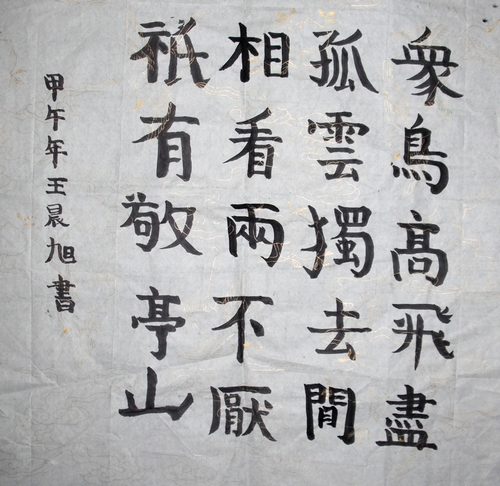 衆鳥高飛盡
孤雲獨去閒
相看兩不厭
祇有敬亭山
甲午年王晨旭書